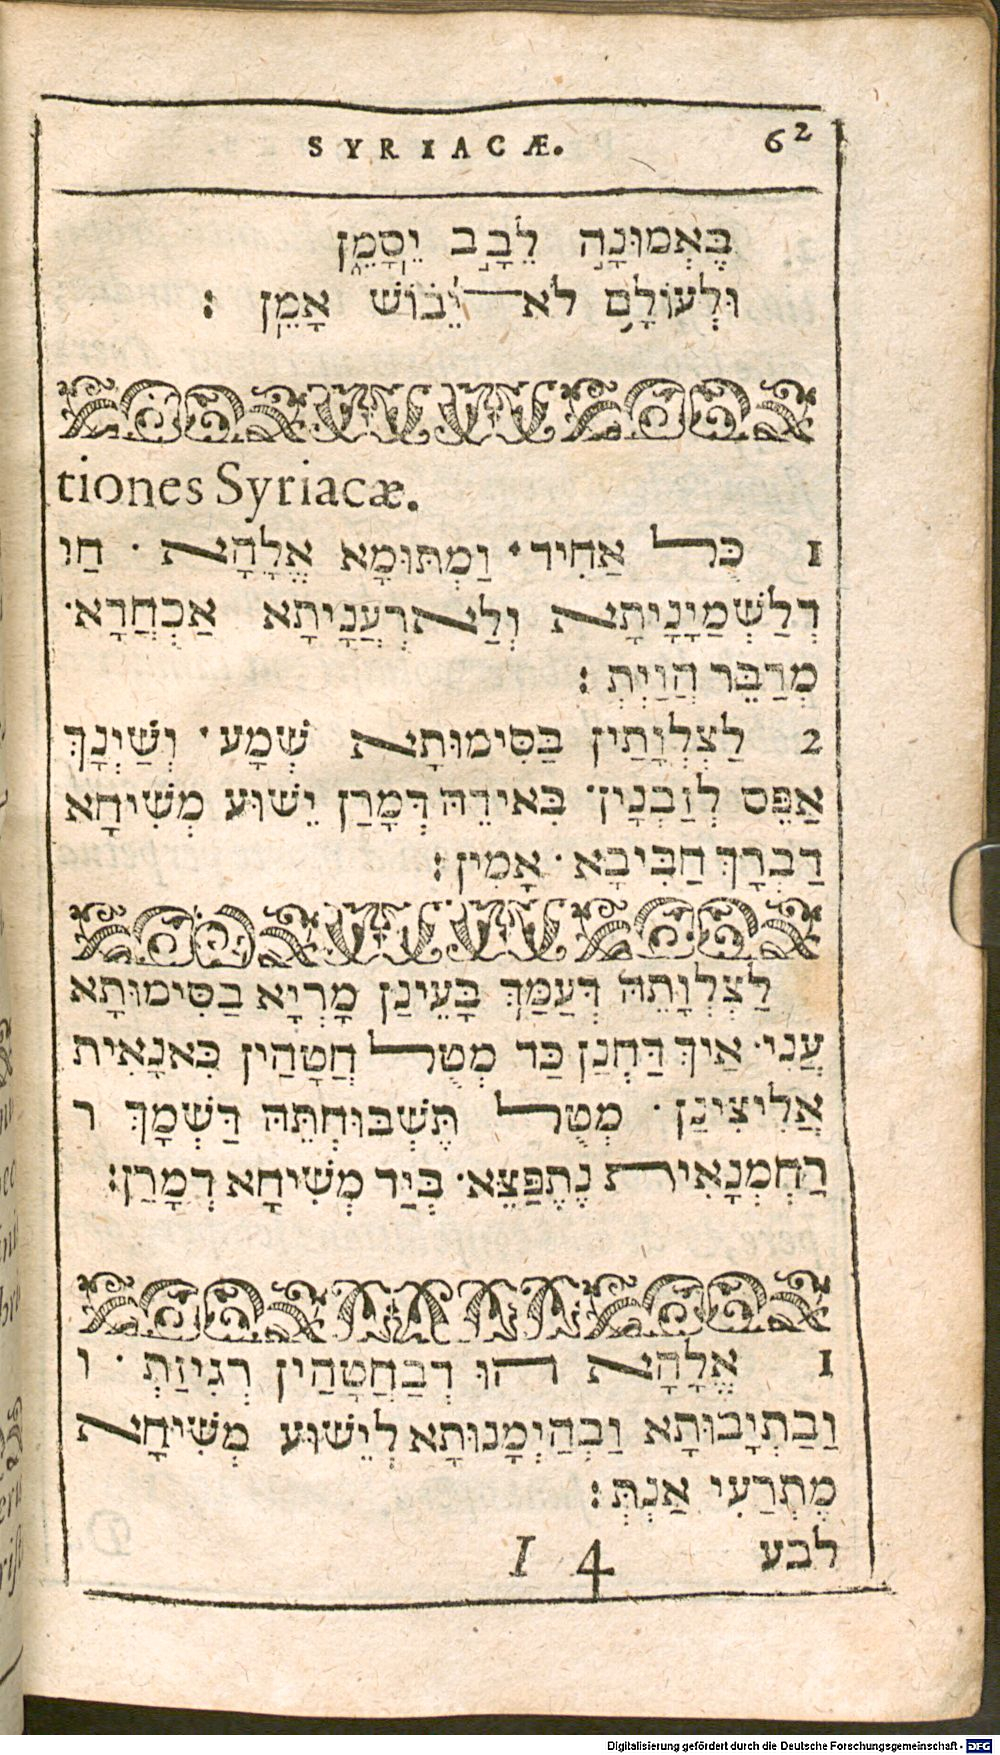 SYRIACÆ. 62
בְּאְמוּנָה לֵבָב יִסָמֵן
וּלְעוֹלָם לֹא יֵבוֹשׁ אָמֵן :
tiones Syriacæ.
1 כֻּל אַחִיד · וַמְתּוּמָא אֱלָהָא · חַו
דְלַשְׁמַיָנָיתָא וְלַארְעָנָיתָא אַכְחֲרָא·
מְדַבֵּר הֲוַיְתְ :
2 לַצְלְוָתַין בַּסִּימוּתָא שְׁמָע · וְשַׁיְנָךְ
אַפֵּס לְזַבְנָין · בִּאידֵהּ דְּמָרַן יֵשׁוּע מְשִׁיחָא
דַבְרָךְ חַבִּיבָא · אָמִין :
לַצְלְוָתֵהּ דְּעַמַּךְ בָּעֵינַן מָרְיָא בַּסִּימוּתָא
עֲנִי · אַיךְ דַּחְנַן כַּד מְטֻל חֲטָהַין כִּאנָאִית
אֲלִיצִינַן · מְטֻל תֶּשְׁבּוּחְתֵּהּ דַּשְׁמָךְ ר
רַחְמְנָאִית נֶתְפַּצֵּא · בְּיַד מְשִׁיחָא דְמָרַן :
1 אֱלָהָא הוּ דְבַחֲטָהַין רְגִיזַתְּ · ו
וַבַתְיָבוּתָא וַבְהַיְמָנוּתָא לְיֵשׁוּע מְשִׁיחָא
מִתְרַעִי אַנְתְּ :
I 4 לבע
Digitalisierung gefördert durch die Deutsche Forschungsgemeinschaft - DFG